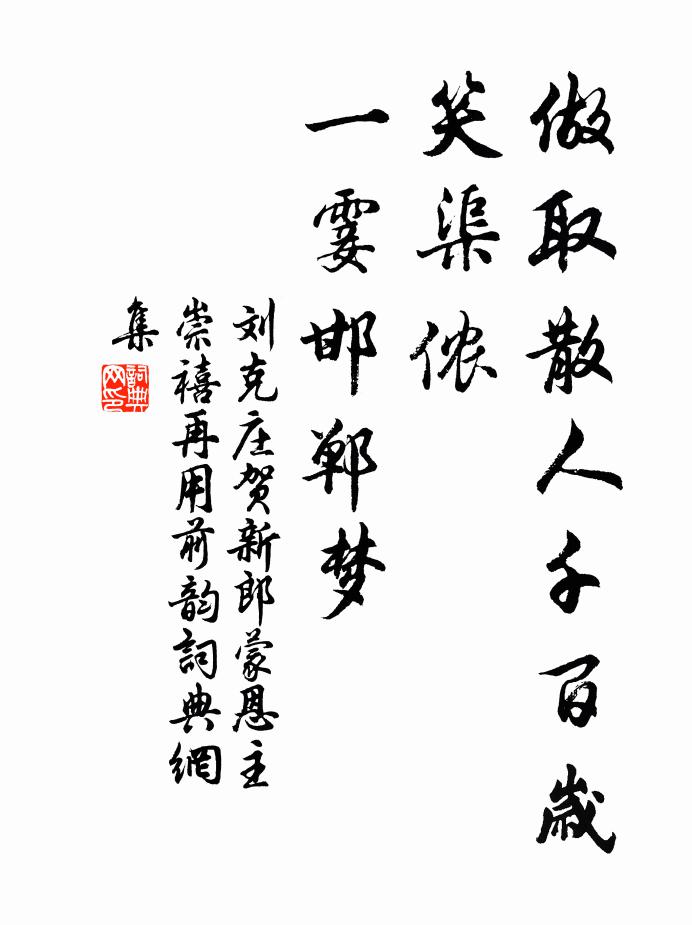 做取散人千百歳
笑渠侬
一霎邯郸梦
刘克庄贺新郎蒙恩主
崇禧再用前韵詞典網
集
詞典
网印